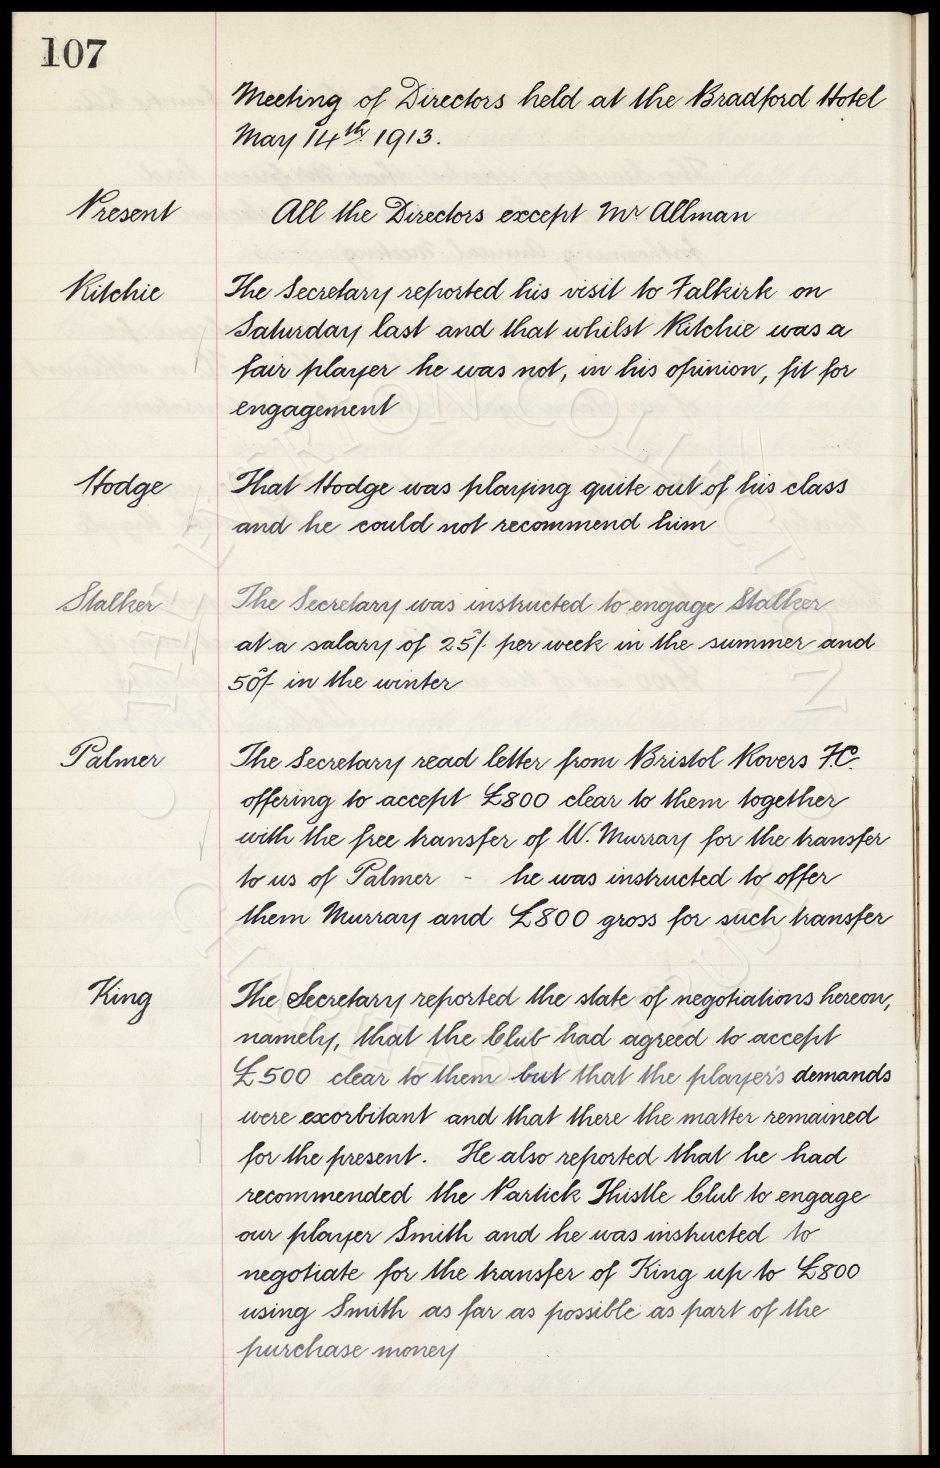 107
Meeting of Directors held at the Bradford Hotel
May 14th 1913.
Present All the Directors except Mr Allman
Ritchie The Secretary reported his visit to Falkirk on
Saturday last and that whilst Ritchie was a
fair player he was not, in his opinion, fit for
engagement
Hodge That Hodge was playing quite out of his class
and he could not recommend him
Stalker The Secretary was instructed to engage Stalker
at a salary of 25/- per week in the summer and
50/- in the winter
Palmer The Secretary read letter from Bristol Rovers F.C.
offering to accept £800 clear to them together
with the free transfer of W. Murray for the transfer
to us of Palmer - he was instructed to offer
them Murray and £800 gross for such transfer
King The Secretary reported the state of negotiations hereon,
namely, that the Club had agreed to accept
£500 clear to them but that the player's demands
were exorbitant and that there the matter remained
for the present. He also reported that he had
recommended the Partick Thistle Club to engage
our player Smith and he was instructed to
negotiate for the transfer of King up to £800
using Smith as far as possible as part of the
purchase money